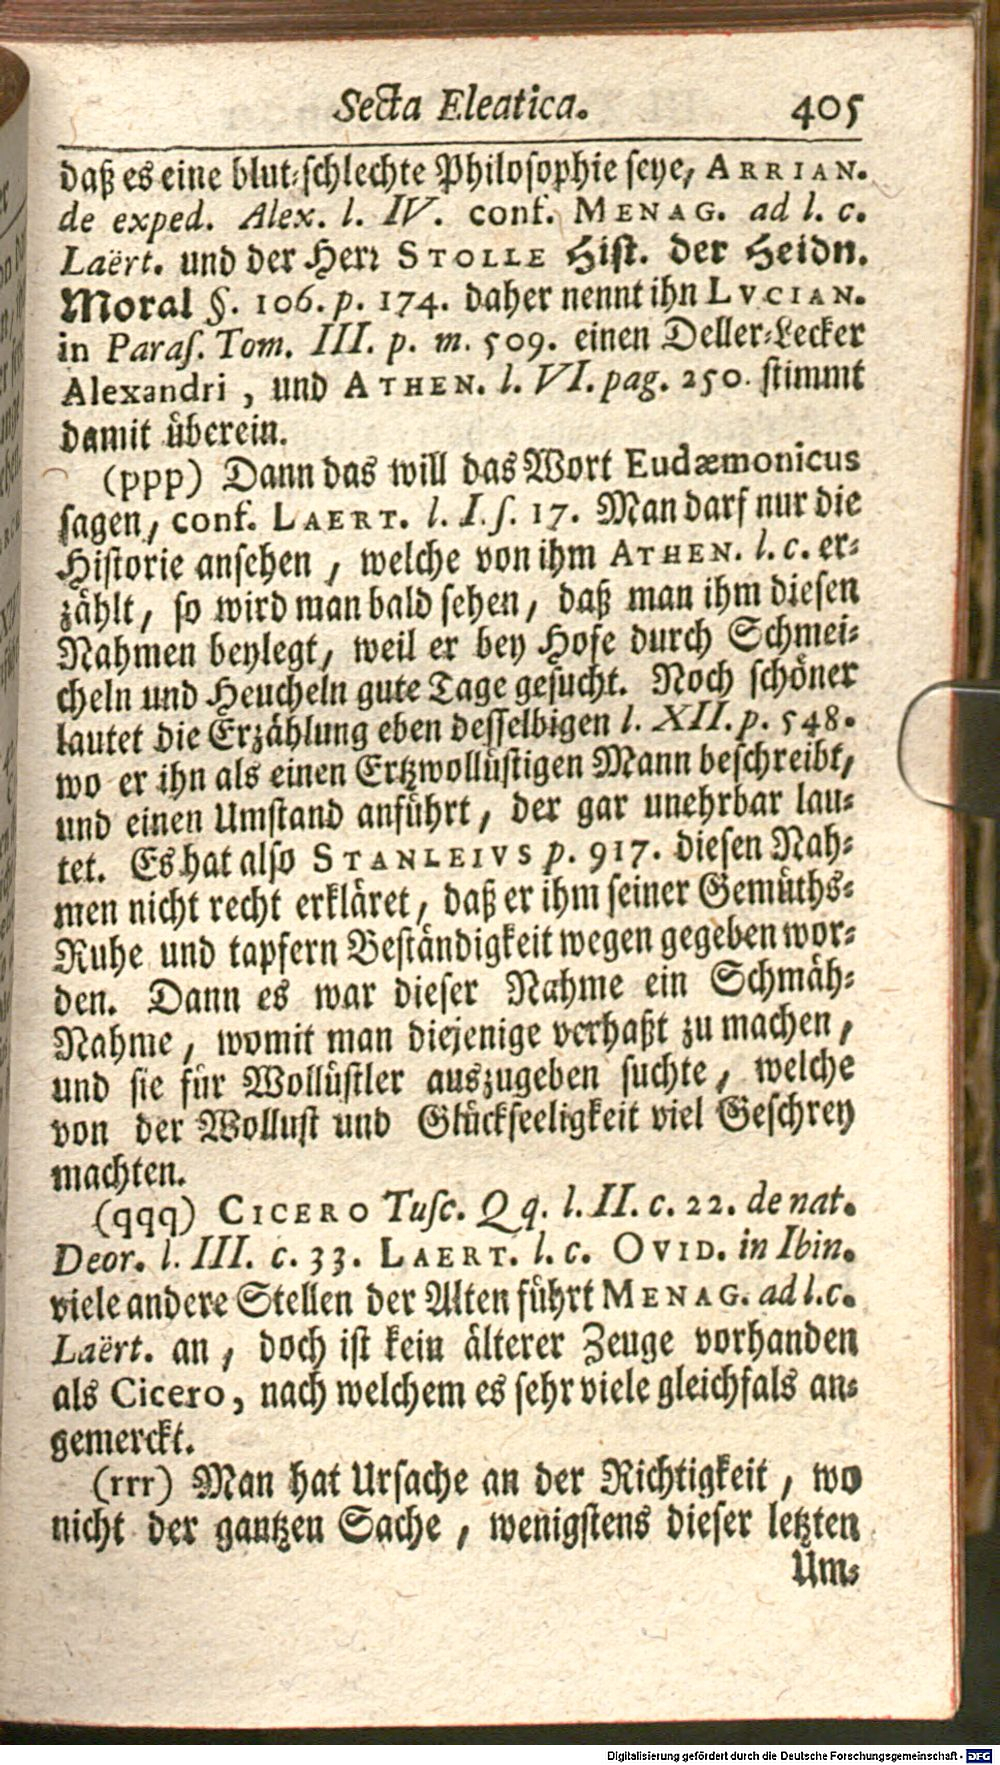 Secta Eleatica. 405
daß es eine blut-schlechte Philosophie seye, ARRIAN.
de exped. Alex. l. IV. conf. MENAG. ad l. c.
Laërt. und der Herr STOLLE Hist. der Heidn.
Moral §. 106. p. 174. daher nennt ihn LVCIAN.
in Paras. Tom. III. p. m. 509. einen Deller-Lecker
Alexandri, und ATHEN. l. VI. pag. 250. stimmt
damit überein.
(ppp) Dann das will das Wort Eudæmonicus
sagen, conf. LAERT. l. I. s. 17. Man darf nur die
Historie ansehen, welche von ihm ATHEN. l. c. er-
zählt, so wird man bald sehen, daß man ihm diesen
Nahmen beylegt, weil er bey Hofe durch Schmei-
cheln und Heucheln gute Tage gesucht. Noch schöner
lautet die Erzählung eben desselbigen l. XII. p. 548.
wo er ihn als einen Ertzwollüstigen Mann beschreibt,
und einen Umstand anführt, der gar unehrbar lau-
tet. Es hat also STANLEIVS p. 917. diesen Nah-
men nicht recht erkläret, daß er ihm seiner Gemüths-
Ruhe und tapfern Beständigkeit wegen gegeben wor-
den. Dann es war dieser Nahme ein Schmäh-
Nahme, womit man diejenige verhaßt zu machen,
und sie für Wollüstler auszugeben suchte, welche
von der Wollust und Glückseeligkeit viel Geschrey
machten.
(qqq) CICERO Tusc. Qq. l. II. c. 22. de nat.
Deor. l. III. c. 33. LAERT. l. c. OVID. in Ibin.
viele andere Stellen der Alten führt MENAG. ad l. c.
Laërt. an, doch ist kein älterer Zeuge vorhanden
als Cicero, nach welchem es sehr viele gleichfals an-
gemerckt.
(rrr) Man hat Ursache an der Richtigkeit, wo
nicht der gantzen Sache, wenigstens dieser letzten
Um-
Digitalisierung gefördert durch die Deutsche Forschungsgemeinschaft - DFG